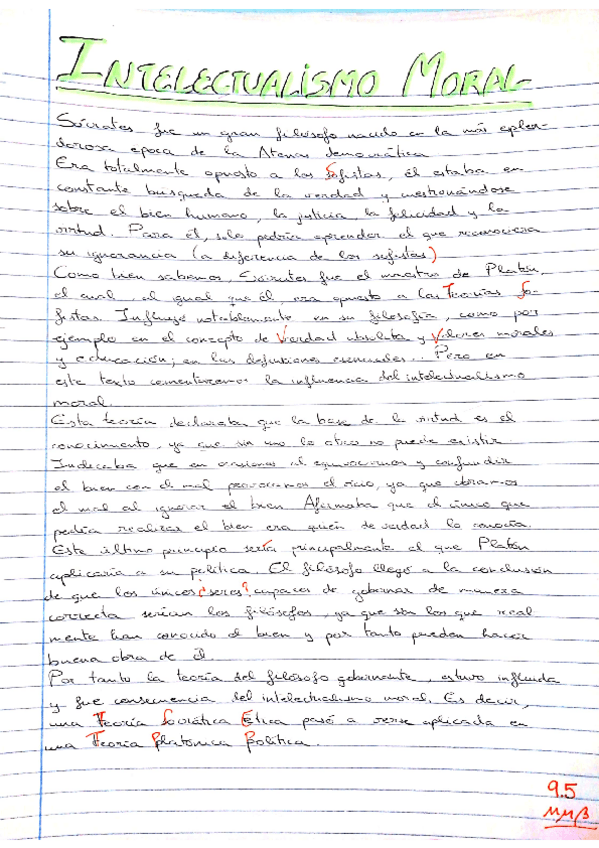 INTELECTUALISMO MORAL
Sócrates fue un gran filósofo nacido en la más esplen-
dorosa epoca de la Atenas democrática
Era totalmente opuesto a los Sofistas, él estaba en
constante busqueda de la verdad y cuestionándose
sobre el bien humano, la justicia, la felicidad y la
virtud. Para él, solo podría aprender el que reconociera
su ignorancia (a diferencia de los sofistas)
Como bien sabemos, Sócrates fue el maestro de Platón,
el cual, al igual que él, era opuesto a las Teorías So-
fistas. Influyó notablemente en su filosofía, como por
ejemplo en el concepto de Verdad absoluta y Valores morales
y educación; en las definiciones esenciales... Pero en
este texto comentaremos la influencia del intelectualismo
moral.
Esta teoría declaraba que la base de la virtud es el
conocimiento, ya que sin uno lo otro no puede existir
Indicaba que en ocasiones al equivocarnos y confundir
el bien con el mal provocamos el vicio, ya que obramos
el mal al ignorar el bien Afirmaba que el único que
podía realizar el bien era quién de verdad lo conocía.
Este último principio sería principalmente el que Platón
aplicaría a su política. El filósofo llegó a la conclusión
de que los únicos ¿seres? capaces de gobernar de manera
correcta serían los filósofos, ya que son los que real
mente han conocido el bien y por tanto pueden hacer
buena obra de él.
Por tanto la teoría del filósofo gobernante, estuvo influida
y fue consecuencia del intelectualismo moral. Es decir,
una Teoría Socrática Ética pasó a verse aplicada en
una Teoría Platónica Política.
9.5